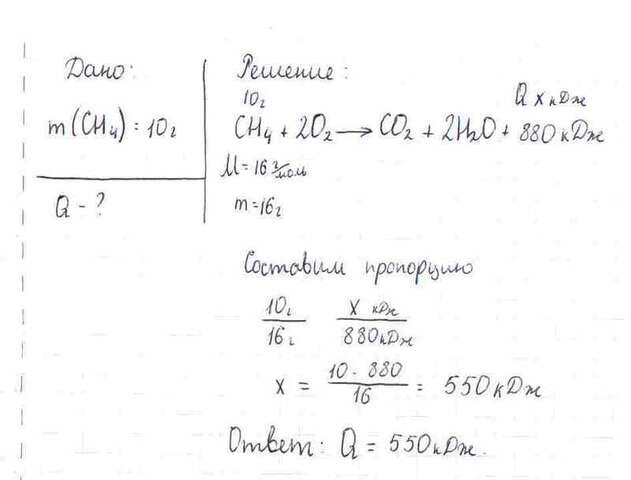 Дано:
m(CH4) = 10г
Q - ?
Решение:
10г
Q x кДж
CH4 + 2O2 → CO2 + 2H2O + 880 кДж
M = 16 г/моль
m = 16г
Составим пропорцию
10г x кДж
16г 880кДж
x = 10 · 880 / 16 = 550кДж
Ответ: Q = 550кДж.